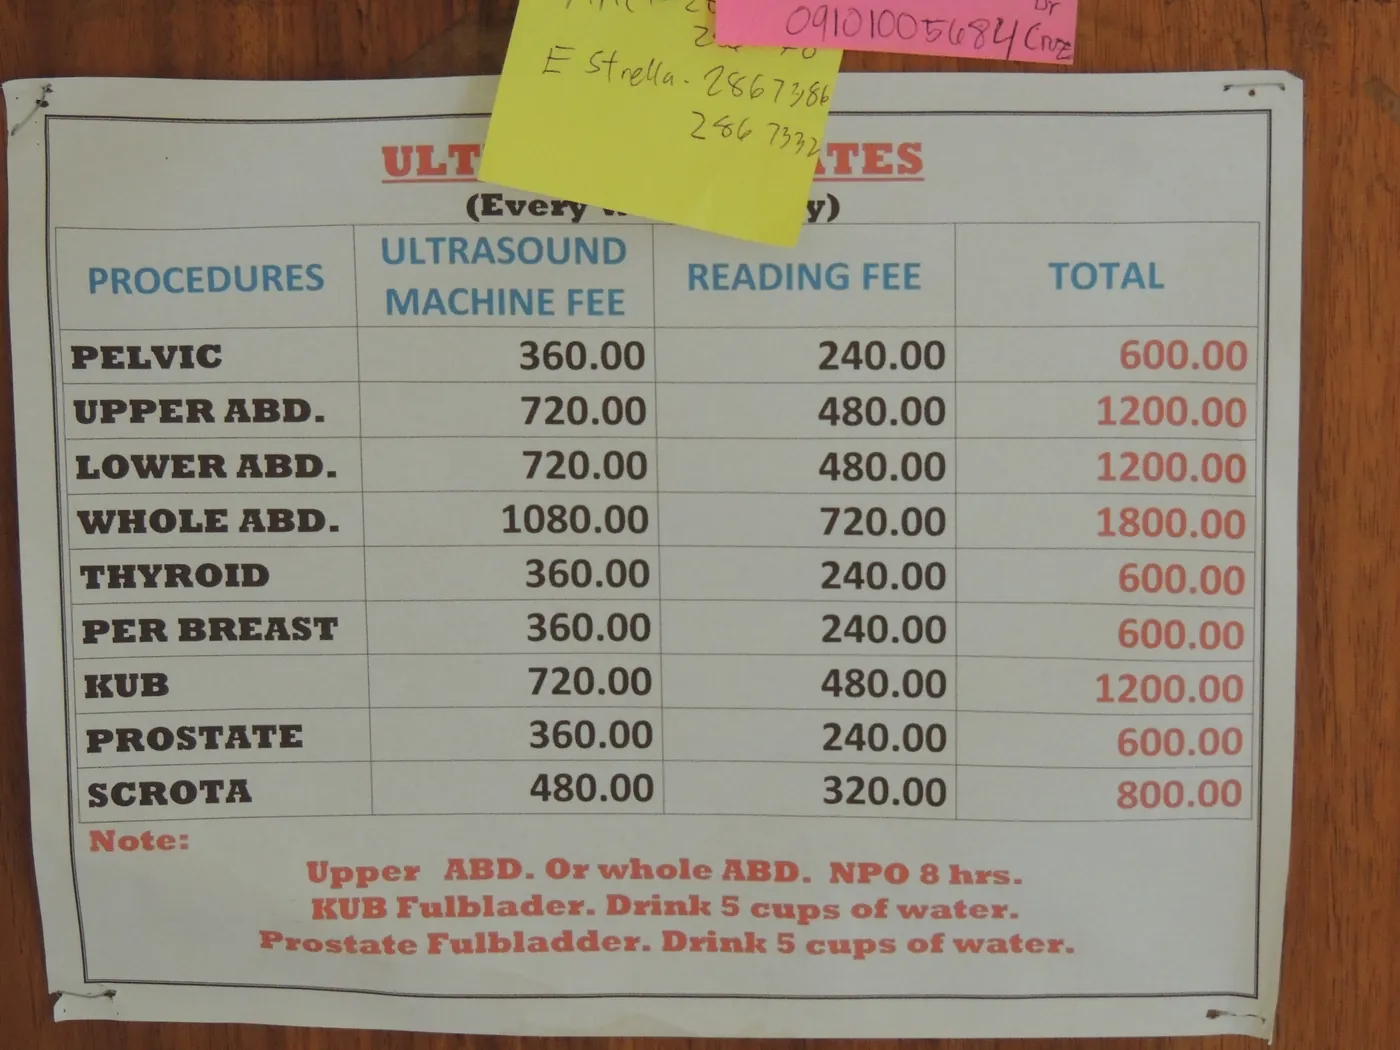 09101005684 Cruz
Dr
E Strella. 2867386
286 7332
ULT ATES
(Every y)
PROCEDURES ULTRASOUND MACHINE FEE READING FEE TOTAL
PELVIC 360.00 240.00 600.00
UPPER ABD. 720.00 480.00 1200.00
LOWER ABD. 720.00 480.00 1200.00
WHOLE ABD. 1080.00 720.00 1800.00
THYROID 360.00 240.00 600.00
PER BREAST 360.00 240.00 600.00
KUB 720.00 480.00 1200.00
PROSTATE 360.00 240.00 600.00
SCROTA 480.00 320.00 800.00
Note:
Upper ABD. Or whole ABD. NPO 8 hrs.
KUB Fulblader. Drink 5 cups of water.
Prostate Fulbladder. Drink 5 cups of water.